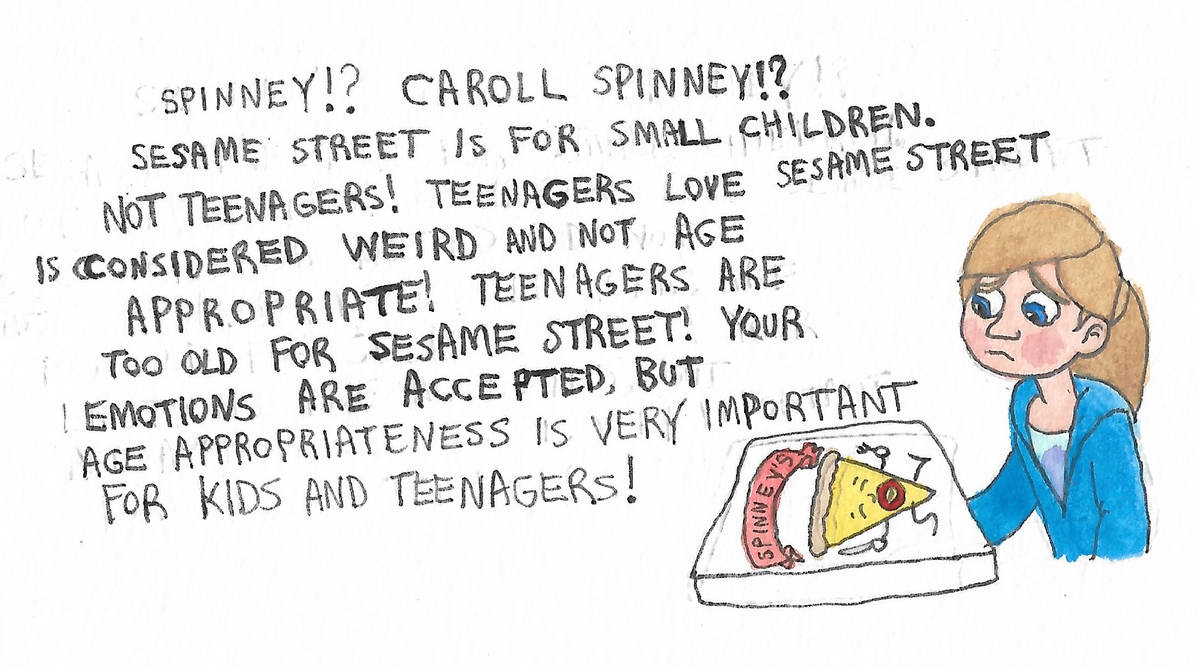 SPINNEY!? CAROLL SPINNEY!?
SESAME STREET IS FOR SMALL CHILDREN.
NOT TEENAGERS! TEENAGERS LOVE SESAME STREET
IS CONSIDERED WEIRD AND NOT AGE
APPROPRIATE! TEENAGERS ARE
TOO OLD FOR SESAME STREET! YOUR
EMOTIONS ARE ACCEPTED, BUT
AGE APPROPRIATENESS IS VERY IMPORTANT
FOR KIDS AND TEENAGERS!
SPINNEY'S